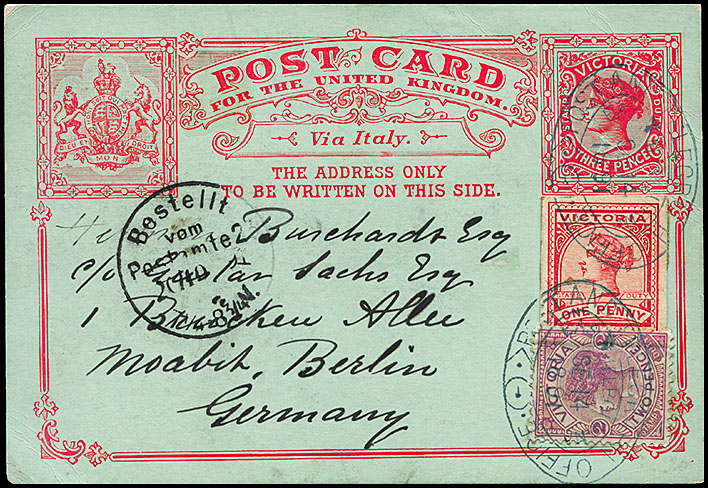 POST CARD
FOR THE UNITED KINGDOM.
Via Italy.
THE ADDRESS ONLY
TO BE WRITTEN ON THIS SIDE.
DIEU ET MON DROIT
VICTORIA
STAMP DUTY
THREE PENCE
VICTORIA
STAMP DUTY
ONE PENNY
VICTORIA
TWO PENCE
2 2
Bestellt
vom
Postamte 2
Burchardt Esq
c/o Gustav Sachs Esq
1 Brücken Allee
Moabit, Berlin
Germany
OFFICE